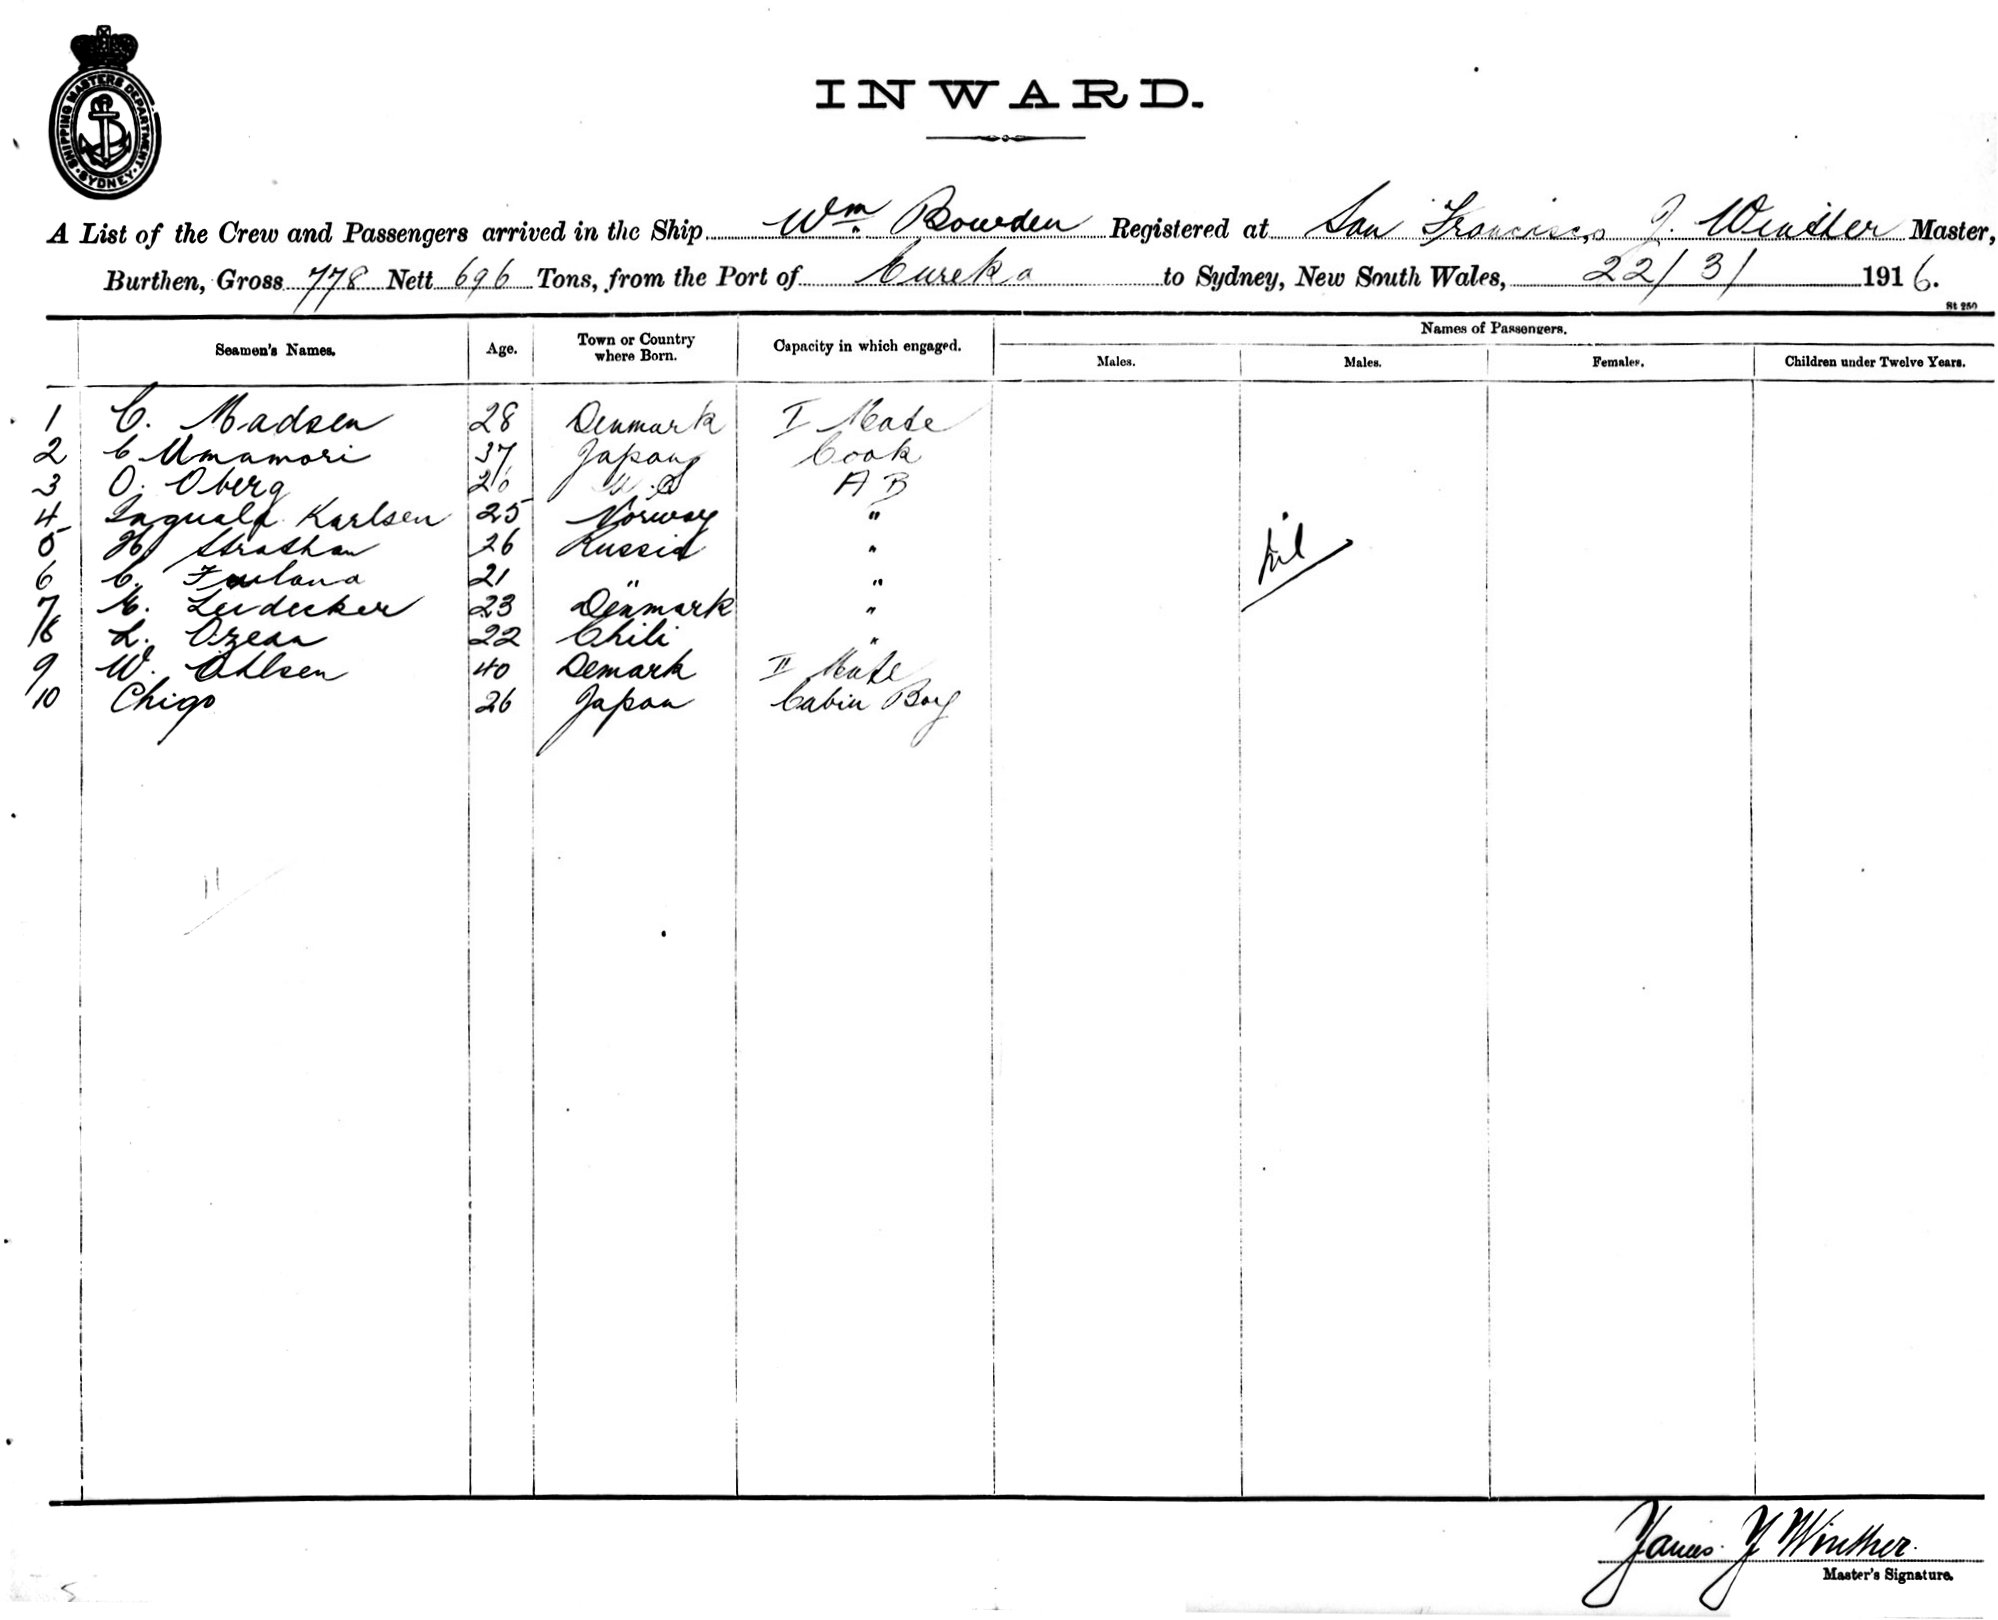 SHIPPING MASTERS DEPARTMENT
SYDNEY
INWARD.
A List of the Crew and Passengers arrived in the Ship Wm. Bowden Registered at San Francisco J. Winther Master,
Burthen, Gross 778 Nett 696 Tons, from the Port of Eureka to Sydney, New South Wales, 22/3/1916.
St 250
Seamen's Names. Age. Town or Country where Born. Capacity in which engaged. Names of Passengers.
Males. Males. Females. Children under Twelve Years.
1 C. Madsen 28 Denmark I Mate
2 C Umamori 37 Japan Cook
3 O. Oberg 26 U.S A B
4 Inguald Karlsen 25 Norway "
5 H. Strathan 26 Russia "
6 C. 21 " "
7 Leidecker 23 Denmark "
8 L. Ozean 22 Chili "
9 W. Ohlsen 40 Demark II Mate
10 Chigo 26 Japan Cabin Boy
nil
11
James Y Winther.
Master's Signature.